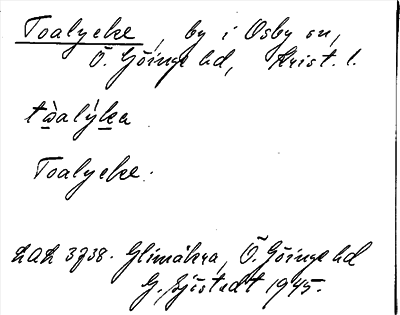 Toalycke, by i Osby sn,
Ö. Göinge hd, Krist. l.
tòalýka
Toalycke.
LAL 3738. Glimåkra, Ö. Göinge hd
G. Sjöstedt 1945.